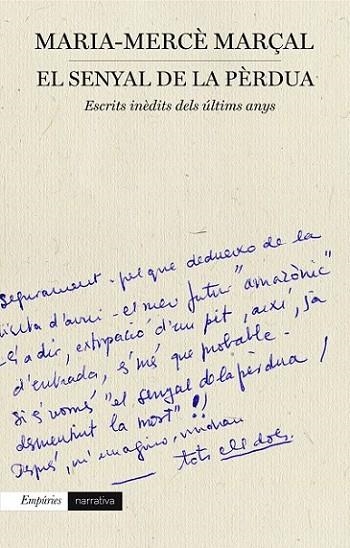 MARIA-MERCÈ MARÇAL
EL SENYAL DE LA PÈRDUA
Escrits inèdits dels últims anys
Segurament - pel que dedueixo de la
visita d'avui - el meu futur "amazònic"
és a dir, extirpació d'un pit, així, ja
d'entrada, és més que probable.
Si és només "el senyal de la pèrdua /
desmentint la mort"!
Després, m'imagino, vindran
tots els dols.
Empúries narrativa